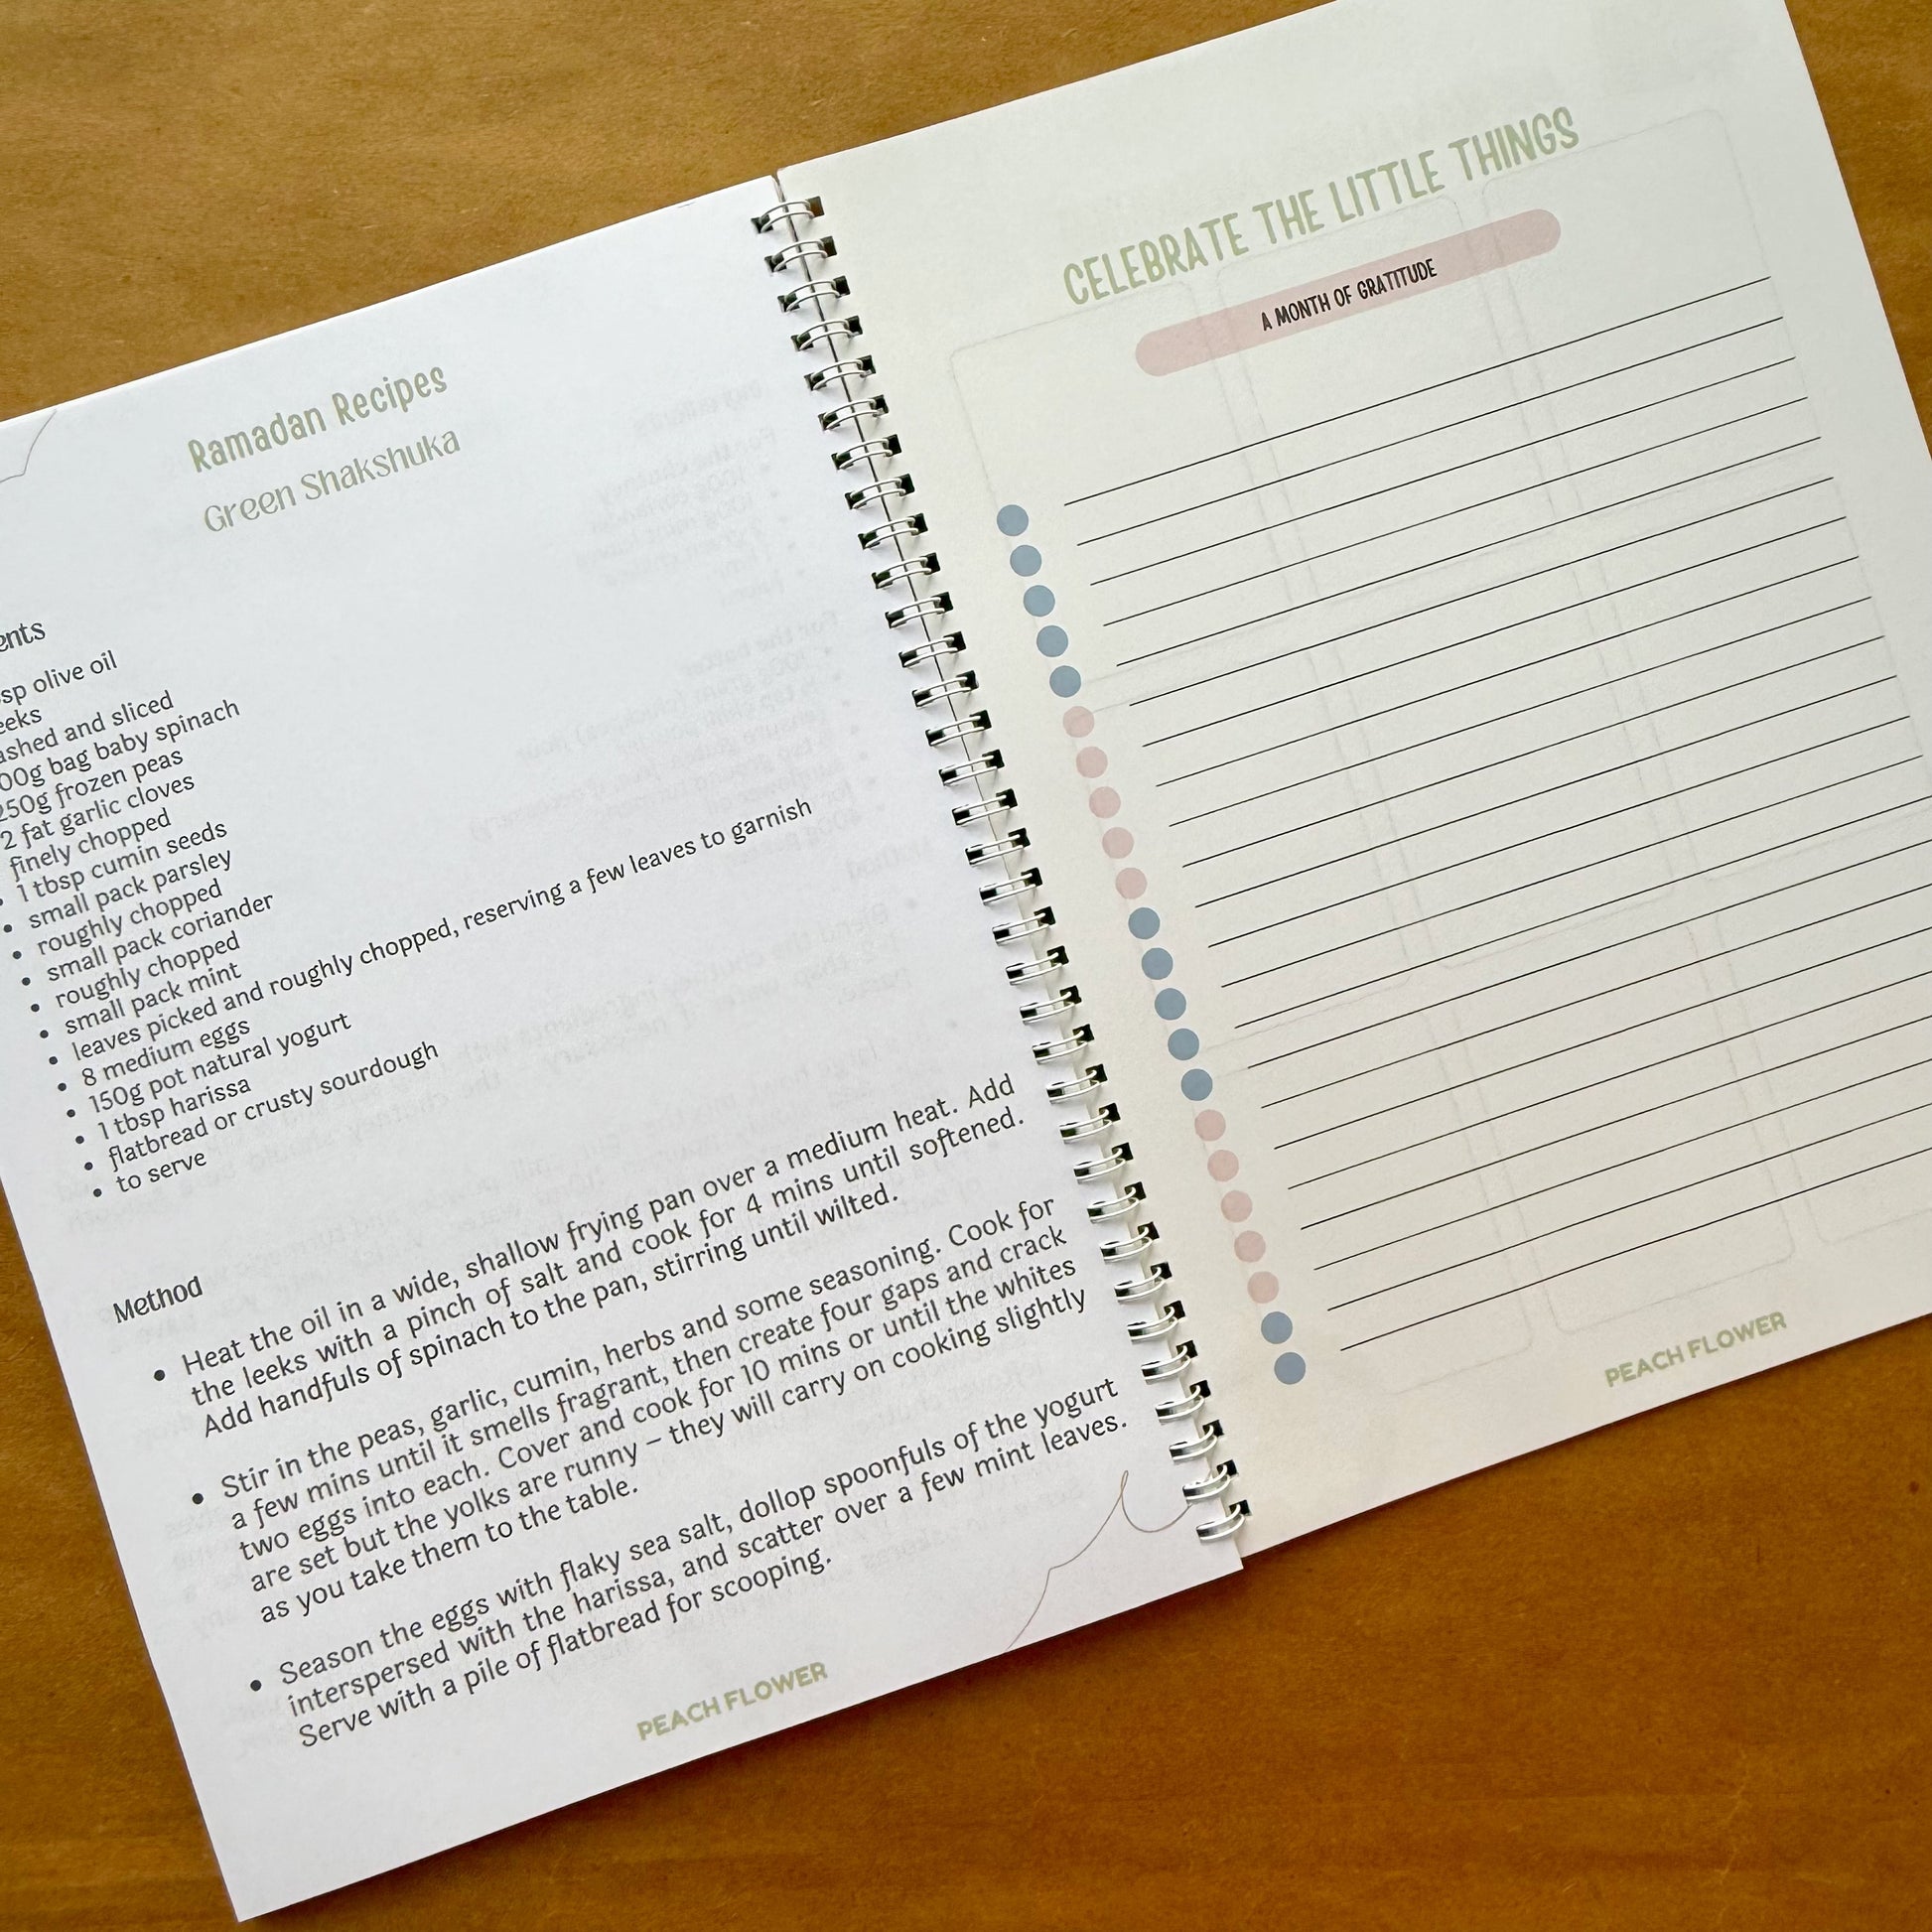 Ramadan Recipes
Green Shakshuka
olive oil
and sliced
bag baby spinach
250g frozen peas
2 fat garlic cloves
finely chopped
1 tbsp cumin seeds
• small pack parsley
• roughly chopped
• small pack coriander
• roughly chopped
• small pack mint
• leaves picked and roughly chopped, reserving a few leaves to garnish
• 8 medium eggs
• 150g pot natural yogurt
• 1 tbsp harissa
• flatbread or crusty sourdough
• to serve
Method
• Heat the oil in a wide, shallow frying pan over a medium heat. Add
the leeks with a pinch of salt and cook for 4 mins until softened.
Add handfuls of spinach to the pan, stirring until wilted.
• Stir in the peas, garlic, cumin, herbs and some seasoning. Cook for
a few mins until it smells fragrant, then create four gaps and crack
two eggs into each. Cover and cook for 10 mins or until the whites
are set but the yolks are runny – they will carry on cooking slightly
as you take them to the table.
• Season the eggs with flaky sea salt, dollop spoonfuls of the yogurt
interspersed with the harissa, and scatter over a few mint leaves.
Serve with a pile of flatbread for scooping.
PEACH FLOWER
CELEBRATE THE LITTLE THINGS
A MONTH OF GRATITUDE
PEACH FLOWER